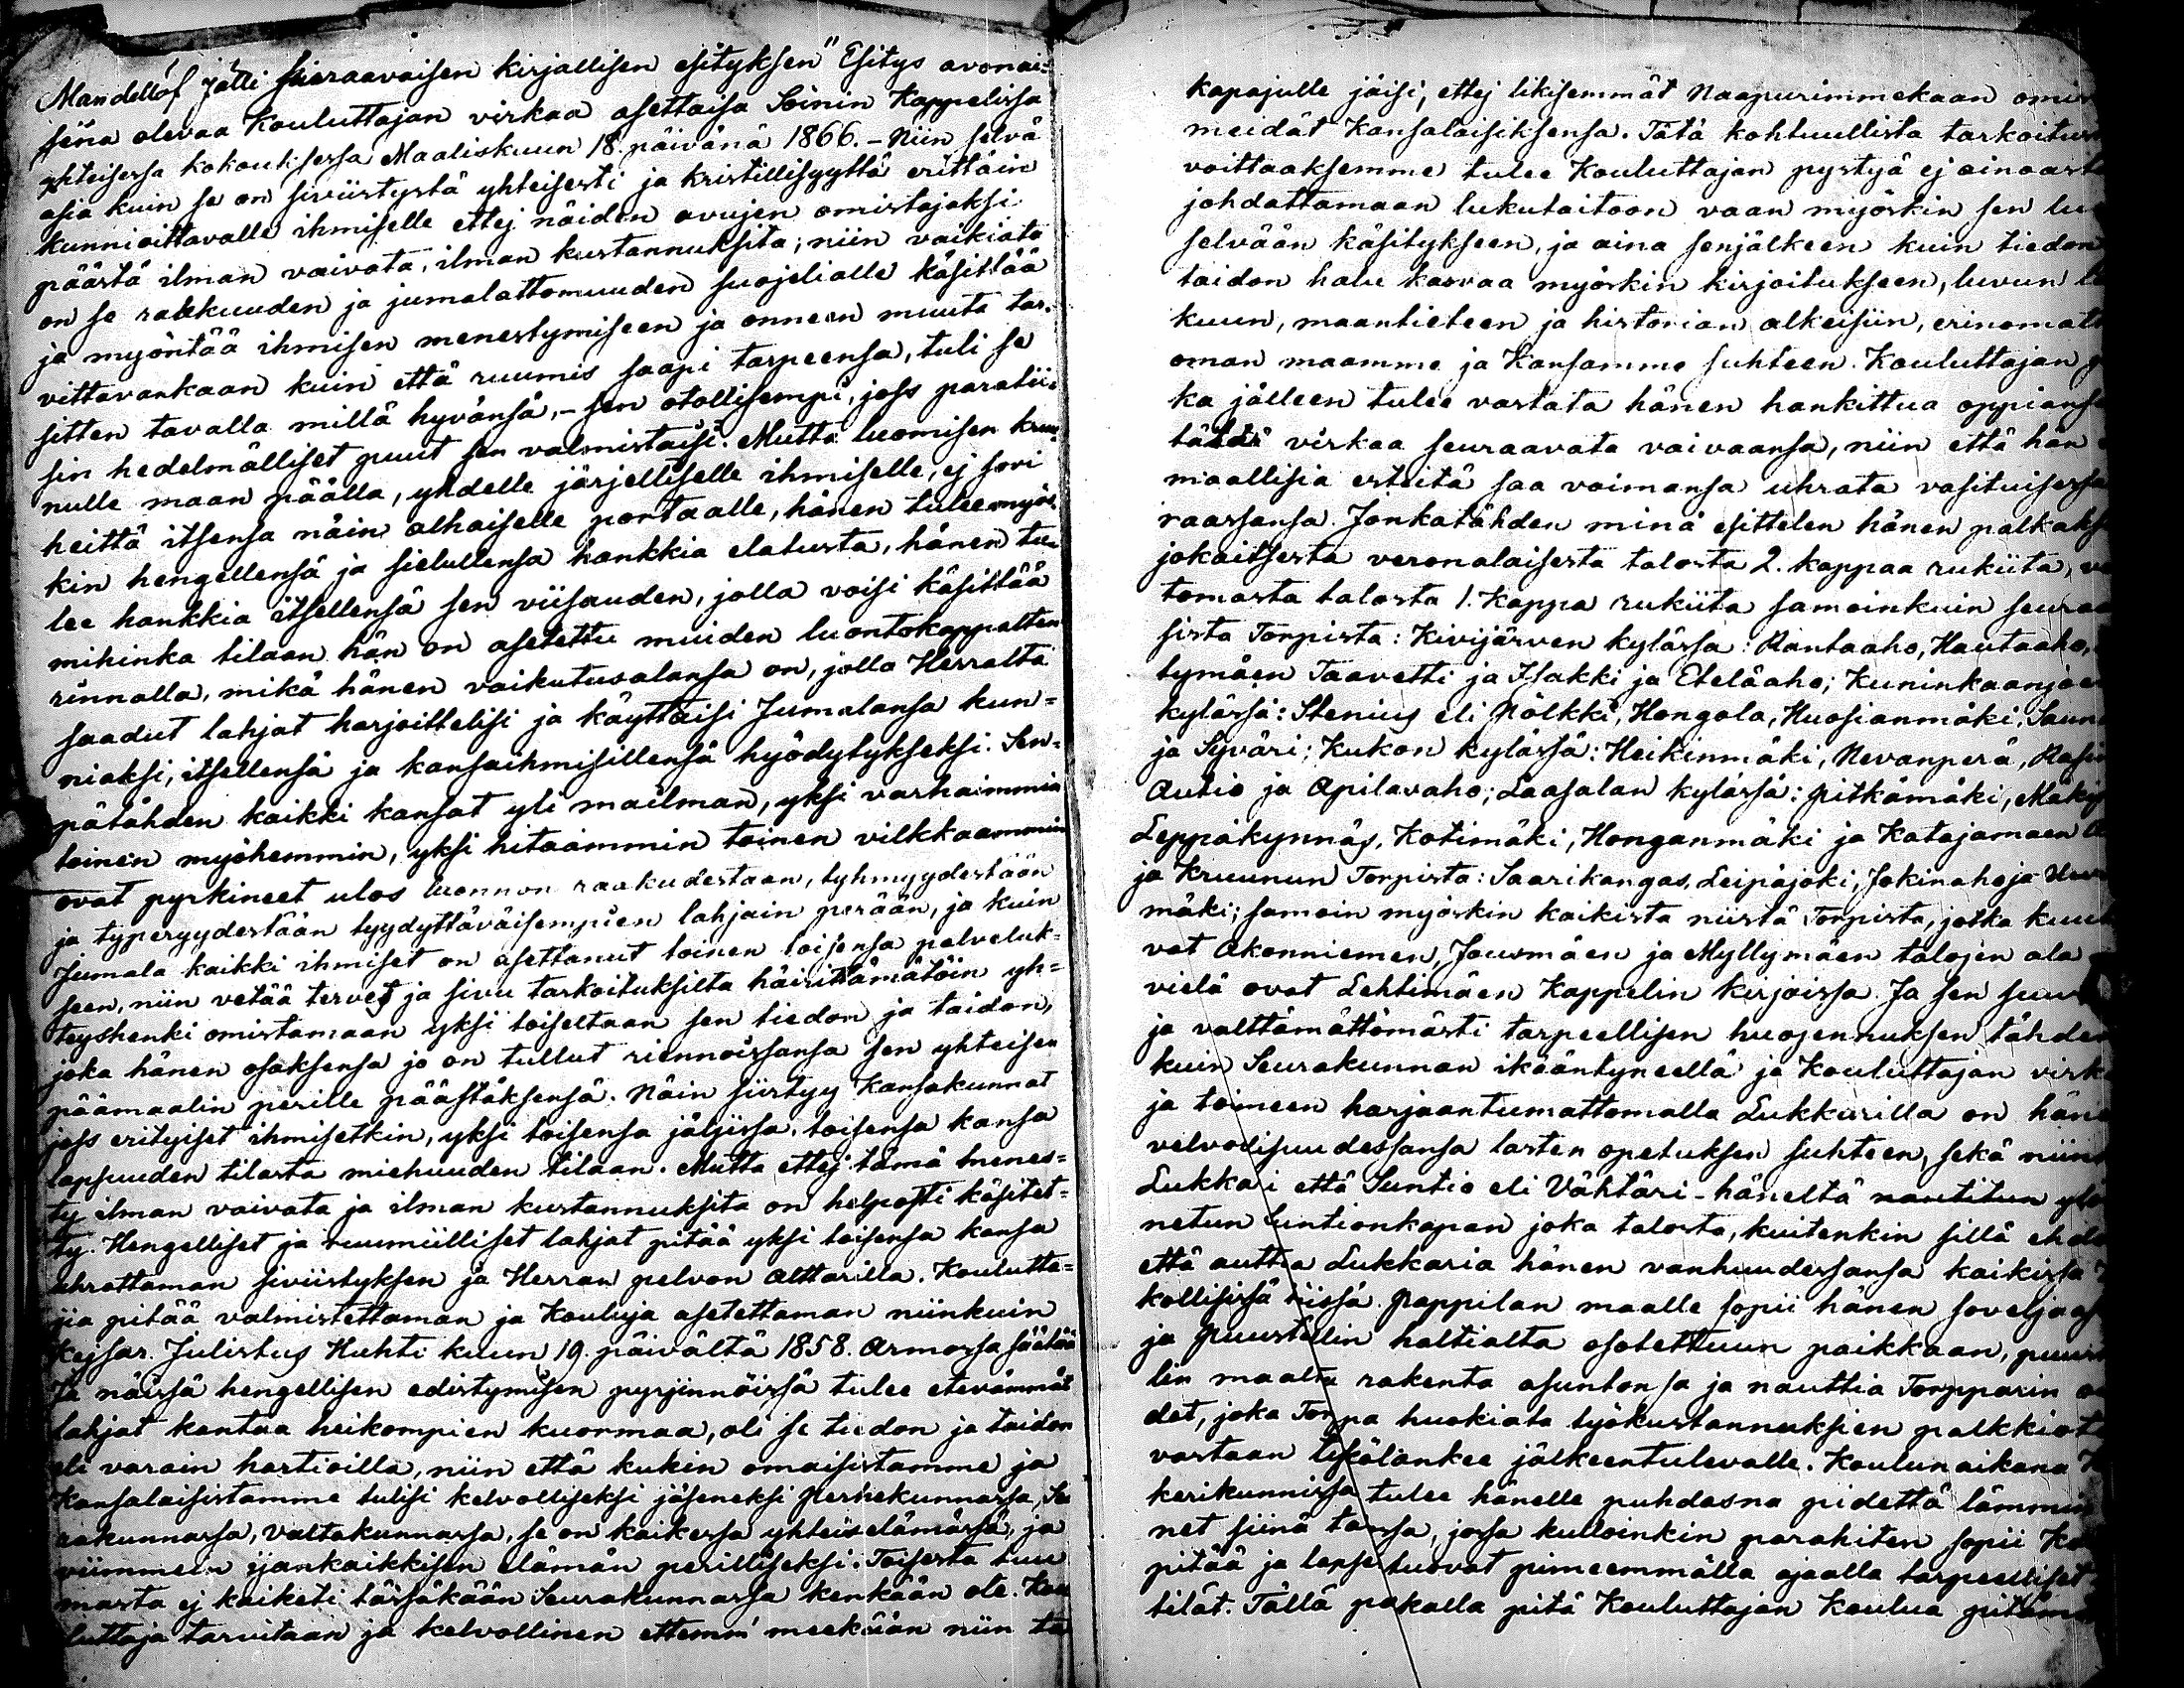 Mandellöf jätti seuraavaisen kirjallisen esityksen "Esitys avonai=
sena olevaa Kouluttajan virkaa asettaisa Soinin Kappelissa
yhteisessa kokouksessa Maaliskuun 18. päivänä 1866. - Niin selvä
asia kuin se on siviistystä yhteisesti ja kristillisyyttä erittäin
kunnioittavalle ihmiselle ettej näiden avujen omistajaksi
päästä ilman vaivata, ilman kustannuksita; niin vaikiata
on se raakuuden ja jumalattomuuden suojelialle käsittää
ja myöntää ihmisen menestymiseen ja onneen muuta tar=
vittavankaan kuin että ruumis saapi tarpeensa, tuli se
sitten tavalla millä hyvänsä, - sen otollisempi, joss paratii=
sin hedelmälliset puut sen valmistaisi. Mutta luomisen kruu=
nulle maan päälla, yhdelle järjelliselle ihmiselle, ej sovi
heittä itsensa näin alhaiselle portaalle, hänen tulee myös=
kin hengellensä ja sielullensa hankkia elatusta, hänen tu=
lee hankkia itsellensä sen viisauden, jolla voisi käsittää
mihinka tilaan hän on asetettu muiden luontokappaltten
rinnalla, mikä hänen vaikutusalansa on, jolla Herralta
saadut lahjat harjoittelisi ja käyttäisi Jumalansa kun=
niaksi, itsellensä ja kansaihmisillensä hyödytykseksi. Sen=
pätähden kaikki kansat yli mailman, yksi varhaimmin
toinen myöhemmin, yksi hitaammin toinen vilkkaammin
ovat pyrkineet ulos luonnon raakudestaan, tyhmyydestään
ja typeryydestään tyydyttäväisempien lahjain perään, ja kuin
Jumala kaikki ihmiset on asettanut toinen toisensa palveluk=
seen, niin vetää terves ja sivu tarkoituksilta häirittämätöin yh=
teyshenki omistamaan yksi toiseltaan sen tiedon ja taidon,
joka hänen osaksensa jo on tullut riennoissansa sen yhteisen
päämaalin perille päästäksensä. Näin siirtyy Kansakunnat
joss erityiset ihmisetkin, yksi toisensa jäljissa, toisensa kansa
lapsuuden tilasta miehuuden tilaan. Mutta ettej tämä menes=
ty ilman vaivata ja ilman kustannuksita on helposti käsitet=
ty. Hengelliset ja ruumiilliset lahjat pitää yksi toisensa kansa
uhrattaman siviistyksen ja Herran pelvon Alttarilla. Koulutta=
jia pitää valmistettaman ja Kouluja asetettaman niinkuin
Kejsar. Julistus Huhti kuun 19. päivältä 1858. Armossa säätää
ta näissä hengellisen edistymisen pyrjinnöissä tulee etevämmät
lahjat kantaa heikompien kuormaa, oli se tiedon ja taidon
eli varain hartioilla, niin että kukin omaisistamme ja
Kansalaisistamme tulisi kelvolliseksi jäseneksi Perhekunnassa, Seu
rakunnassa, Valtakunnassa, se on kaikessa yhteis elämässä, ja
viimmein ijankaikkisen elämän perilliseksi. Toisesta luu
masta ej kaiketi tässäkään Seurakunnassa kenkään ole. Kou
luttaja tarvitaan ja kelvollinen ettemm' meekään niin ta
kapajulle jäisi, ettej likisemmät Naapurimmekaan omis
meidät Kansalaisiksensa. Tätä kohtuullista tarkoitus
voittaaksemme tulee Kouluttajan pystyä ej ainoast
johdattamaan lukutaitoon vaan myöskin sen lu
selvään käsitykseen, ja aina senjälkeen kuin tiedon
taidon halu kasvaa myöskin kirjoitukseen, luvun l
kuun, maantieteen ja historian alkeisiin, erinomat
oman maamme ja Kansamme suhteen. Kouluttajan p
ka jälleen tulee vastata hänen hankittua oppiansa
tähdä virkaa seuraavata vaivaansa, niin että hän
maallisia esteitä saa voimansa uhrata vasituisessa
raassansa. Jonkatähden minä esittelen hänen palkaks
jokaitsesta veronalaisesta talosta 2. kappaa rukiita, v
tomasta talosta 1. Kappa rukiita samoinkuin seuraa
sista Torpista: Kivijärven kylässa: Rantaaho, Hautaaho,
tymäen Taavetti ja Isakki ja Eteläaho; Kuninkaanjo
kylässä: Stenius eli Pölkki, Hongola, Huosianmäki, Saun
ja Syväri; Kukon kylässä: Heikinmäki, Nevanperä,
Autio ja Apilavaho; Laasalan kylässä: Pitkämäki, Mäky
Leppäkynnäs, Kotimäki, Honganmäki ja Katajamaen
ja Kruunun Torpista: Saarikangas, Leipäjoki, Jokinaho ja Uu
mäki; samoin myöskin kaikista niistä Torpista, jotka kuu
vat Akonniemen, Jousmäen ja Myllymäen talojen ala
vielä ovat Lehtimäen Kappelin kirjoissa. Ja sen suu
ja valttämättömästi tarpeellisen huojennuksen tähden
kuin Seurakunnan ikääntyneellä ja Kouluttajan virk
ja toimeen harjaantumattomalla Lukkarilla on häne
velvolisuudessansa lasten opetuksen suhteen, sekä niin
Lukkari että Suntio eli Vähtäri - häneltä nautitun yli
netun suntionkapan joka talosta, kuitenkin sillä ehdo
että auttaa Lukkaria hänen vanhuudessansa kaikissa
kollisissä            Pappilan maalle sopii hänen soveljaas
ja Puustellin haltialta osotettuun paikkaan, puus
lin maalta rakenta asuntonsa ja nauttia Torpparin o
det, joka Torpa huokiata työkustannuksien palkkiot
vastaan                jälkeentulevalle. Koulunaikana
kerikunnissa tulee hänelle puhdasna pidettä lämmin
net siinä            jossa kulloinkin parahiten sopii Ko
pitää ja lapset tuovat pimeemmälla ajaalla tarpeelliset
tilät. Tällä pakalla pitä Kouluttajan Koulua pitäm